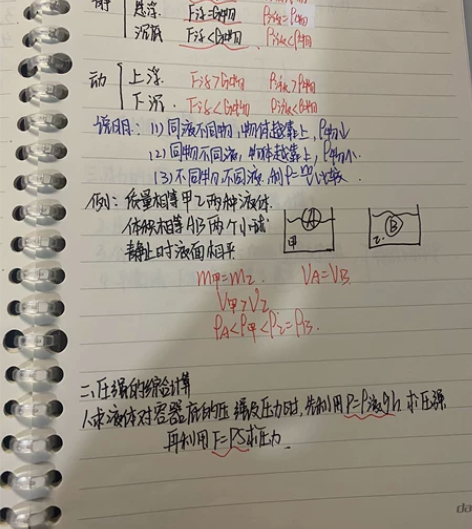 静
悬浮 F浮=G物 ρ液=ρ物
沉底 F浮<G物 ρ液<ρ物
动
上浮 F浮>G物 ρ液>ρ物
下沉. F浮<G物 ρ液<ρ物
说明: (1) 同液不同物,物体越靠上,ρ物小
(2) 同物不同液,物体越靠上,
(3) 不同物不同液,利ρ=
例: 质量相等甲乙两种液体.
体积相等AB两个小球
静止时液面相平
A
甲
B
乙.
m甲=m乙 VA=VB
V甲>V乙
ρA<ρ甲<ρ乙=ρB.
二、压强的综合计算
1、求液体对容器底的压强及压力时,先利用P=ρ液gh求压强
再利用F=PS求压力
da